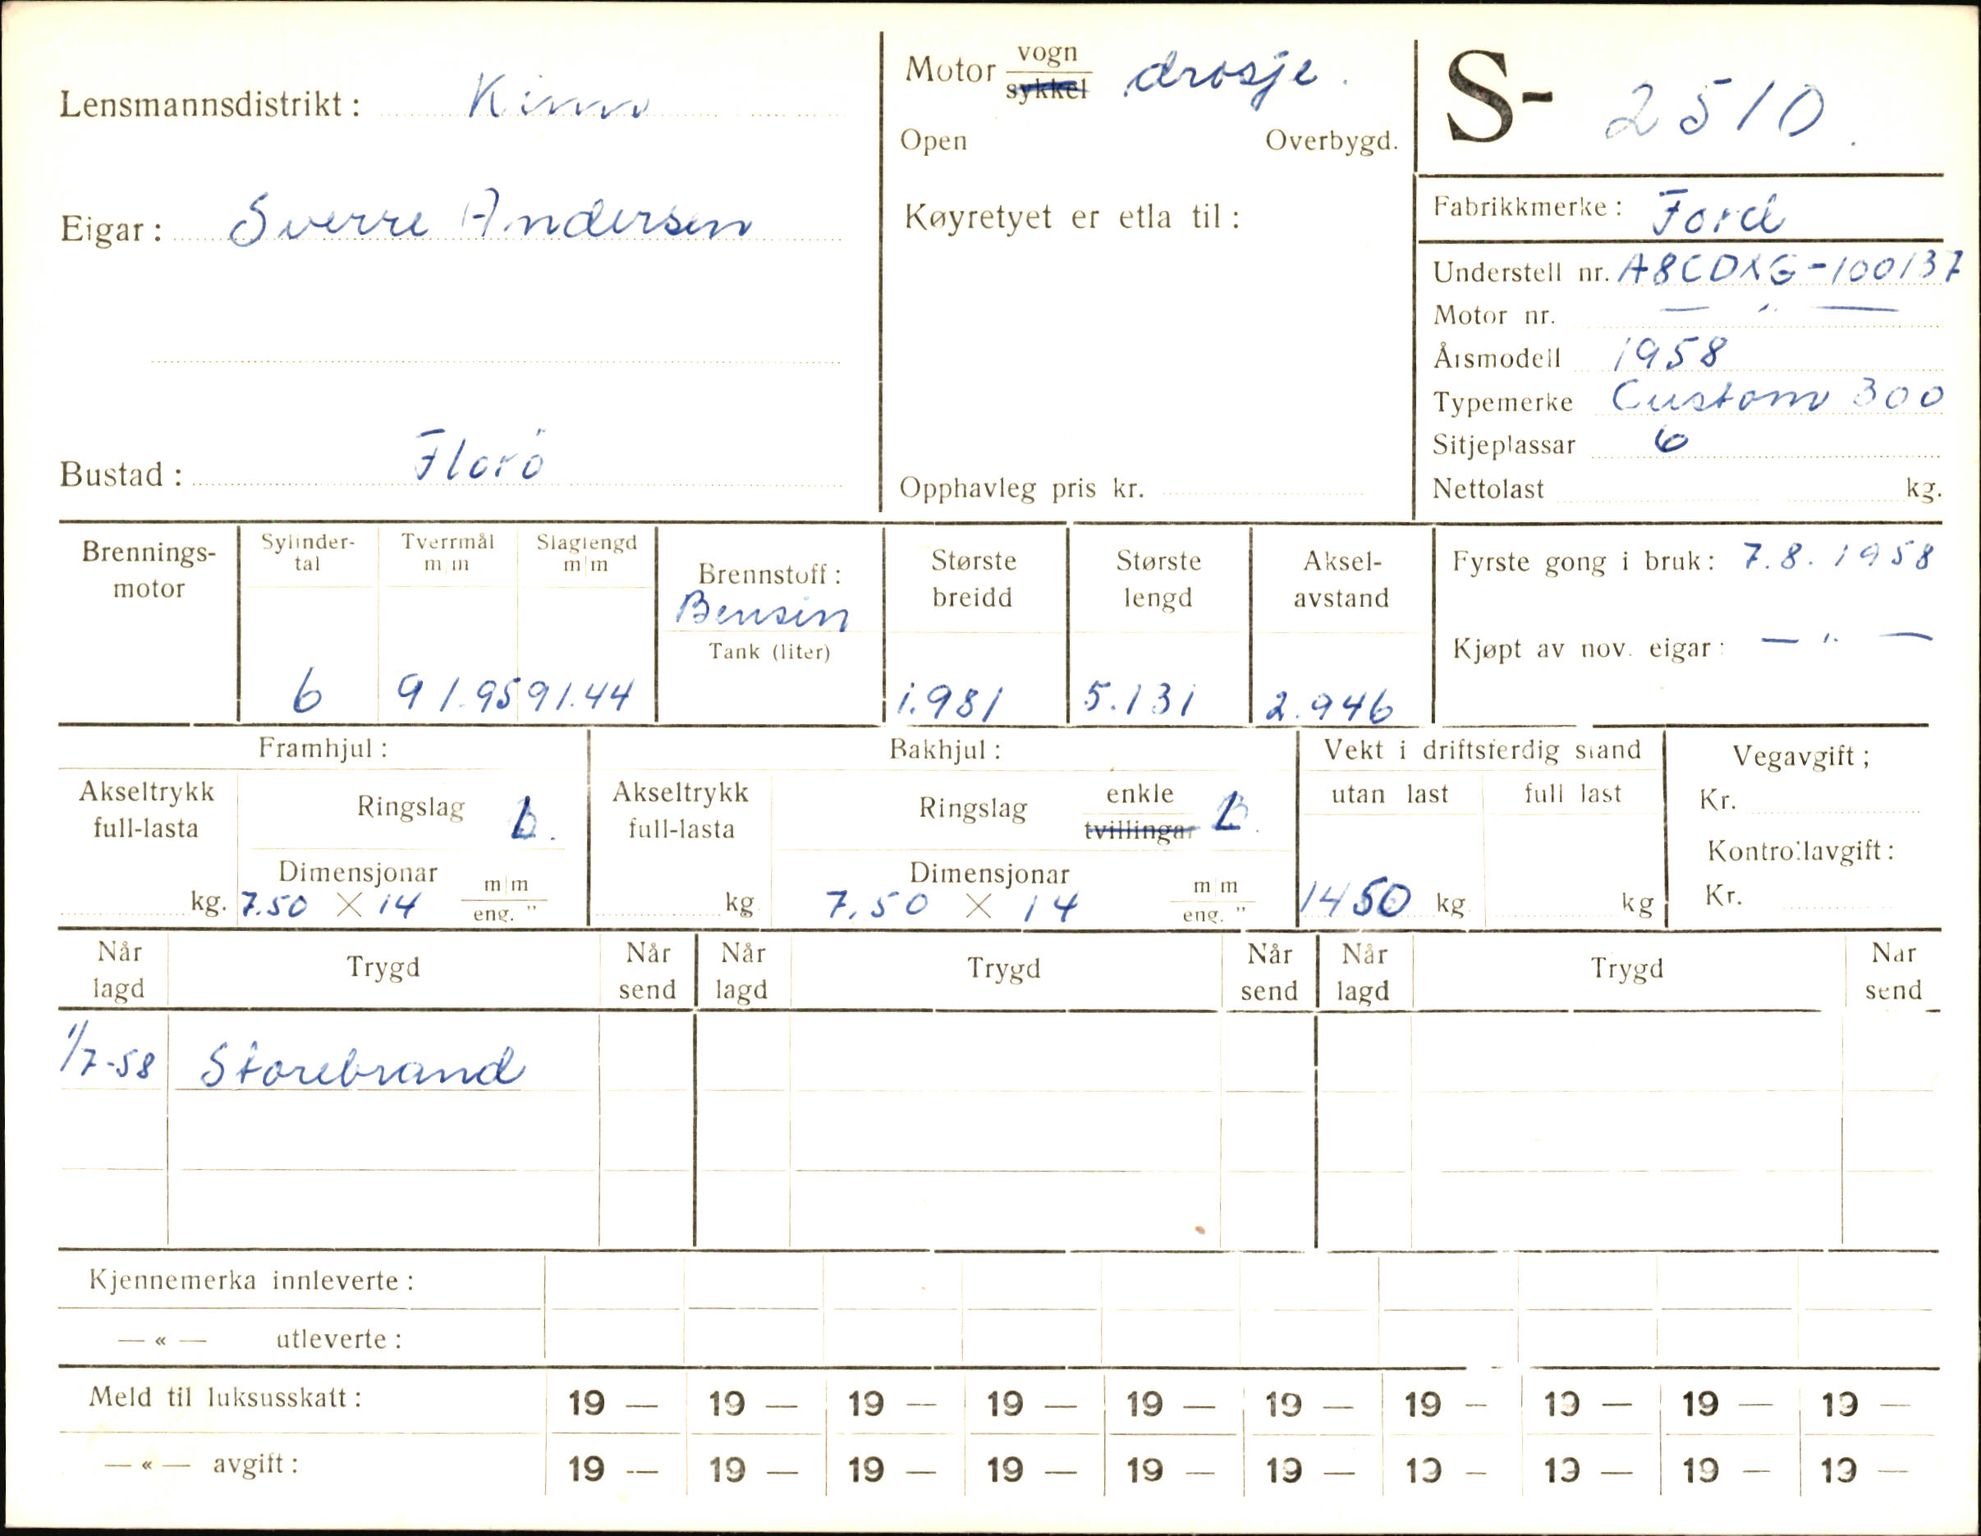 Lensmannsdistrikt: Kinn
Eigar: Sverre Andersen
Bustad: Florö
Motor vogn sykkel drosje.
Open Overbygd.
Køyretyet er etla til:
Opphavleg pris kr.
S- 2510.
Fabrikkmerke: Ford
Understell nr. A8CDXG-100137
Motor nr. — " —
Årsmodell 1958
Typemerke Custom 300
Sitjeplassar 6
Nettolast kg.
Brennings-motor
Sylinder-tal 6
Tverrmål m/m 91.95
Slaglengd m/m 91.44
Brennstoff: Bensin
Tank (liter)
Største breidd 1.981
Største lengd 5.131
Aksel-avstand 2.946
Fyrste gong i bruk: 7.8.1958
Kjøpt av nov. eigar: — " —
Framhjul:
Akseltrykk full-lasta kg.
Ringslag
Dimensjonar 7.50 × 14 m/m eng. "
Bakhjul:
Akseltrykk full-lasta kg
Ringslag enkle tvillingar
Dimensjonar 7.50 × 14 m/m eng. "
Vekt i driftsferdig stand
utan last 1450 kg
full last kg
Vegavgift;
Kr.
Kontrollavgift:
Kr.
Når lagd Trygd Når send Når lagd Trygd Når send Når lagd Trygd Når send
1/7-58 Storebrand
Kjennemerka innleverte:
— « — utleverte:
Meld til luksusskatt: 19 — 19 — 19 — 19 — 19 — 19 — 19 — 19 — 19 — 19 —
— « — avgift: 19 — 19 — 19 — 19 — 19 — 19 — 19 — 19 — 19 — 19 —